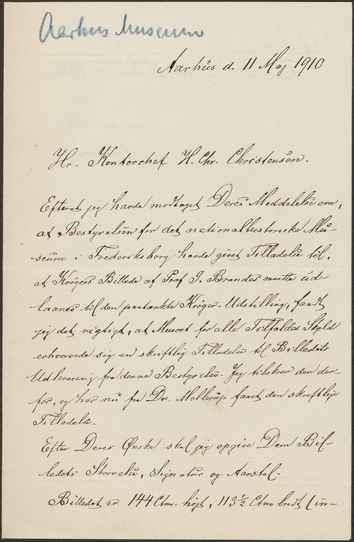 Aarhus Museum
Aarhus d. 11 Maj 1910
Hr. Kontorchef H. Chr. Christensen.
Efterat jeg havde modtaget Deres Meddelelse om,
at Bestyrelsen for det nationalhistoriske Mu-
seum i Frederiksborg havde givet Tilladelse til,
at Krøyers Billede af Prof J. Brandes maatte ud-
laanes til den paatænkte Krøyer-Udstilling, fandt
jeg det rigtigt, at Museet for alle Tilfældes Skyld
erhvervede sig en skriftlig Tilladelse til Billedets
Udlevering fra denne Bestyrelse. Jeg tilskrev den der-
for, og har nu fra Dr. Mollerup faaet den skriftlige
Tilladelse.
Efter Deres Ønske skal jeg opgive Dem Bil-
ledets Størrelse, Signatur og Aarstal:
Billedet er 144 Ctm. højt, 113½ Ctm bredt (in-